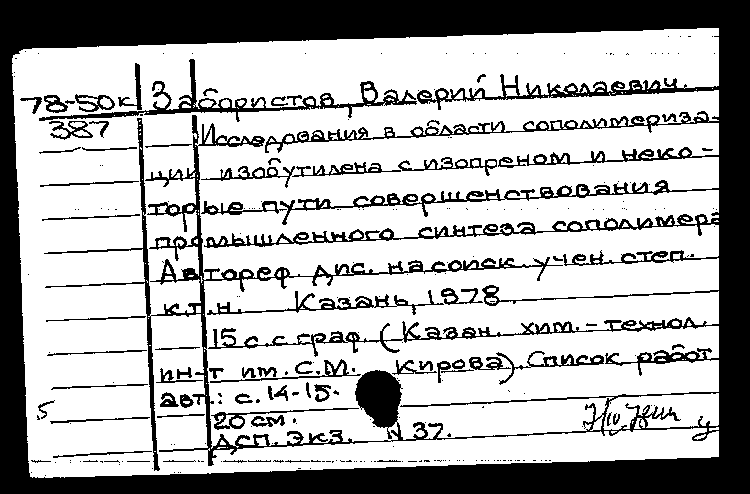 78-50к Забористов, Валерий Николаевич.
387 Исследования в области сополимериза-
ции изобутилена с изопреном и неко-
торые пути совершенствования
промышленного синтеза сополимера
Автореф. дис. на соиск. учен. степ.
к.т.н. Казань, 1978.
15 с. с граф. (Казан. хим.-технол.
ин-т им. С.М. Кирова). Список работ
авт.: с. 14-15.
5 20 см.
ДСП. Экз. N 37.